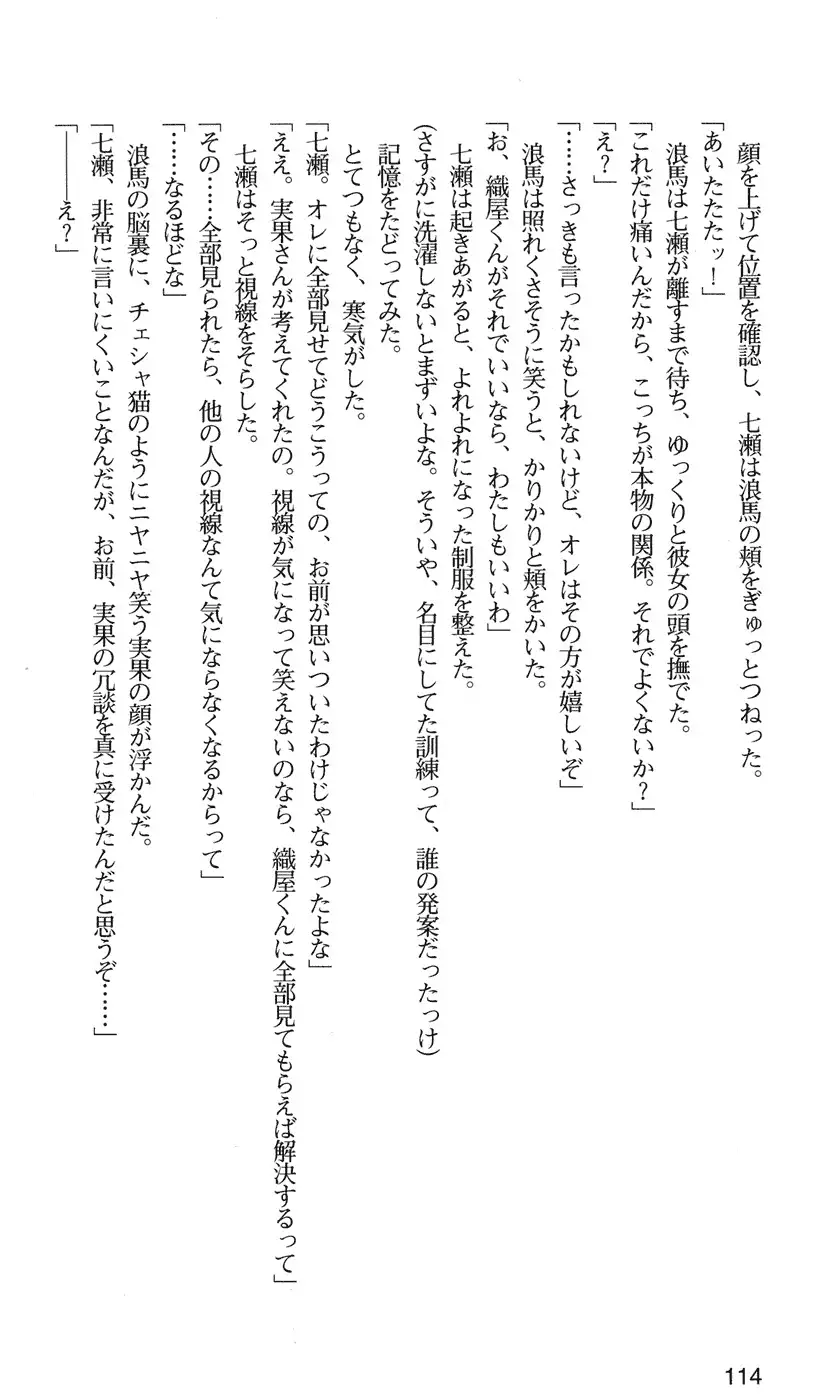 顔を上げて位置を確認し、七瀬は浪馬の頬をぎゅっとつねった。
「あいたたたッ！」
　浪馬は七瀬が離すまで待ち、ゆっくりと彼女の頭を撫でた。
「これだけ痛いんだから、こっちが本物の関係。それでよくないか？」
「え？」
「……さっきも言ったかもしれないけど、オレはその方が嬉しいぞ」
　浪馬は照れくさそうに笑うと、かりかりと頬をかいた。
「お、織屋くんがそれでいいなら、わたしもいいわ」
　七瀬は起きあがると、よれよれになった制服を整えた。
(さすがに洗濯しないとまずいよな。そういや、名目にしてた訓練って、誰の発案だったっけ)
　記憶をたどってみた。
　とてつもなく、寒気がした。
「七瀬。オレに全部見せてどうこうっての、お前が思いついたわけじゃなかったよな」
「ええ。実果さんが考えてくれたの。視線が気になって笑えないのなら、織屋くんに全部見てもらえば解決するって」
　七瀬はそっと視線をそらした。
「その……全部見られたら、他の人の視線なんて気にならなくなるからって」
「……なるほどな」
　浪馬の脳裏に、チェシャ猫のようにニヤニヤ笑う実果の顔が浮かんだ。
「七瀬、非常に言いにくいことなんだが、お前、実果の冗談を真に受けたんだと思うぞ……」
「――え？」
114